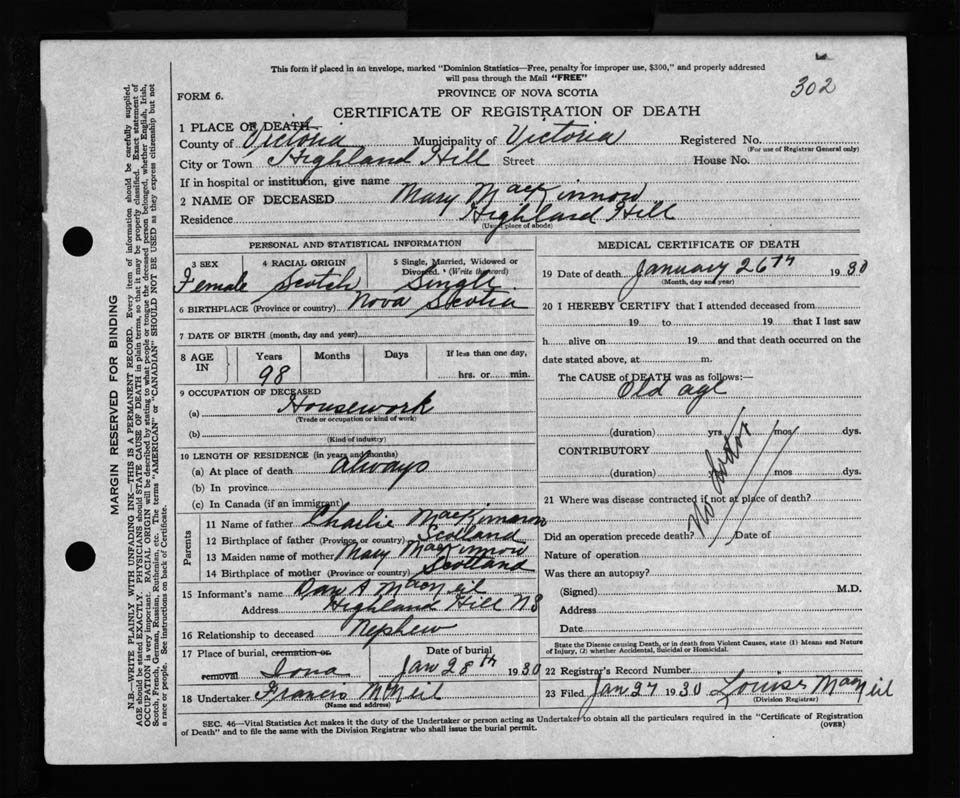 This form if placed in an envelope, marked "Dominion Statistics—Free, penalty for improper use, $300," and properly addressed
will pass through the Mail "FREE"
302
FORM 6.
PROVINCE OF NOVA SCOTIA
CERTIFICATE OF REGISTRATION OF DEATH
1 PLACE OF DEATH
County of Victoria Municipality of Victoria Registered No.
(For use of Registrar General only)
City or Town Highland Hill Street House No.
If in hospital or institution, give name
2 NAME OF DECEASED Mary MacKinnon
Residence Highland Hill
(Usual place of abode)
PERSONAL AND STATISTICAL INFORMATION
3 SEX 4 RACIAL ORIGIN 5 Single, Married, Widowed or
Divorced. (Write the word)
Female Scotch Single
6 BIRTHPLACE (Province or country) Nova Scotia
7 DATE OF BIRTH (month, day and year)
8 AGE IN Years Months Days If less than one day,
98 hrs. or min.
9 OCCUPATION OF DECEASED
(a) Housework
(Trade or occupation or kind of work)
(b)
(Kind of industry)
10 LENGTH OF RESIDENCE (in years and months)
(a) At place of death Always
(b) In province
(c) In Canada (if an immigrant)
Parents
11 Name of father Charlie MacKinnon
12 Birthplace of father (Province or country) Scotland
13 Maiden name of mother Mary MacKinnon
14 Birthplace of mother (Province or country) Scotland
15 Informant's name Dan A MacNeil
Address Highland Hill NS
16 Relationship to deceased Nephew
17 Place of burial, cremation or removal Iona Date of burial Jan 28th 1930
18 Undertaker Francis McNeil
(Name and address)
MEDICAL CERTIFICATE OF DEATH
19 Date of death January 26th 1930
(Month, day and year)
20 I HEREBY CERTIFY that I attended deceased from
19 to 19 that I last saw
h alive on 19 and that death occurred on the
date stated above, at m.
The CAUSE of DEATH was as follows:—
Old age
(duration) yrs. mos. dys.
CONTRIBUTORY
(duration) mos. dys.
No doctor
21 Where was disease contracted if not at place of death?
Did an operation precede death? Date of
Nature of operation
Was there an autopsy?
(Signed) M.D.
Address
Date
State the Disease causing Death, or in death from Violent Causes, state (1) Means and Nature
of Injury, (2) whether Accidental, Suicidal or Homicidal.
22 Registrar's Record Number
23 Filed Jan 27 1930 Louise MacNeil
(Division Registrar)
SEC. 46—Vital Statistics Act makes it the duty of the Undertaker or person acting as Undertaker to obtain all the particulars required in the "Certificate of Registration
of Death" and to file the same with the Division Registrar who shall issue the burial permit.
(OVER)
MARGIN RESERVED FOR BINDING
N.B.—WRITE PLAINLY WITH UNFADING INK—THIS IS A PERMANENT RECORD. Every item of information should be carefully supplied.
AGE should be stated EXACTLY. PHYSICIANS should STATE CAUSE OF DEATH in plain terms, so that it may be properly classified. Exact statement of
OCCUPATION is very important. RACIAL ORIGIN will be described by stating to what people or tongue the deceased person belonged, whether English, Irish,
Scotch, French, German, Russian, Ruthenian, etc. The terms "AMERICAN" or "CANADIAN" SHOULD NOT BE USED as they express citizenship but not
a race or people. See instructions on back of Certificate.